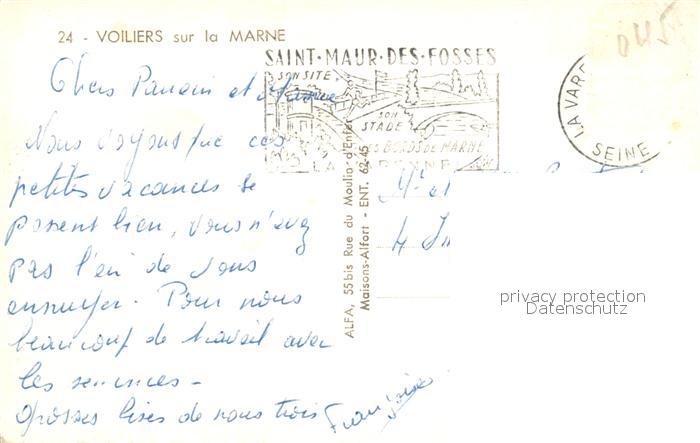 24 - VOILIERS sur la MARNE
SAINT-MAUR-DES-FOSSES
SON SITE
SON
STADE
BORDS DE MARNE
LA VAR
SEINE
045
Chers Parrain et
Nous voyons que ces
petites vacances se
passent bien, vous n'avez
pas l'air de vous
ennuyer. Pour nous
beaucoup de travail avec
les
Grosses bises de nous trois
Françoise
ALFA, 55 bis Rue du Moulin-d'Enfer
Maisons-Alfort - ENT. 62-45
4
privacy protection
Datenschutz